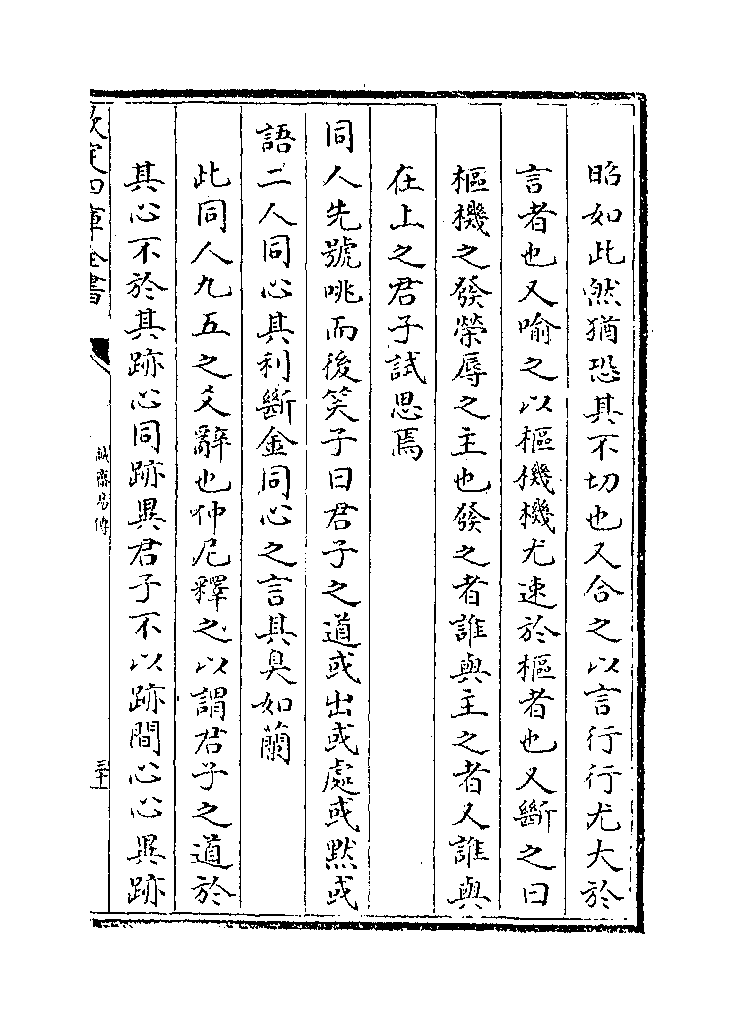 昭如此然猶恐其不切也又合之以言行行尤大於
言者也又喻之以樞機機尤速於樞者也又斷之曰
樞機之發榮辱之主也發之者誰與主之者又誰與
在上之君子試思焉
同人先號咷而後笑子曰君子之道或出或處或黙或
語二人同心其利斷金同心之言其臭如蘭
此同人九五之爻辭也仲尼釋之以謂君子之道於
其心不於其跡心同跡異君子不以跡間心心異跡
欽定四庫全書
誠齋易傳
三十